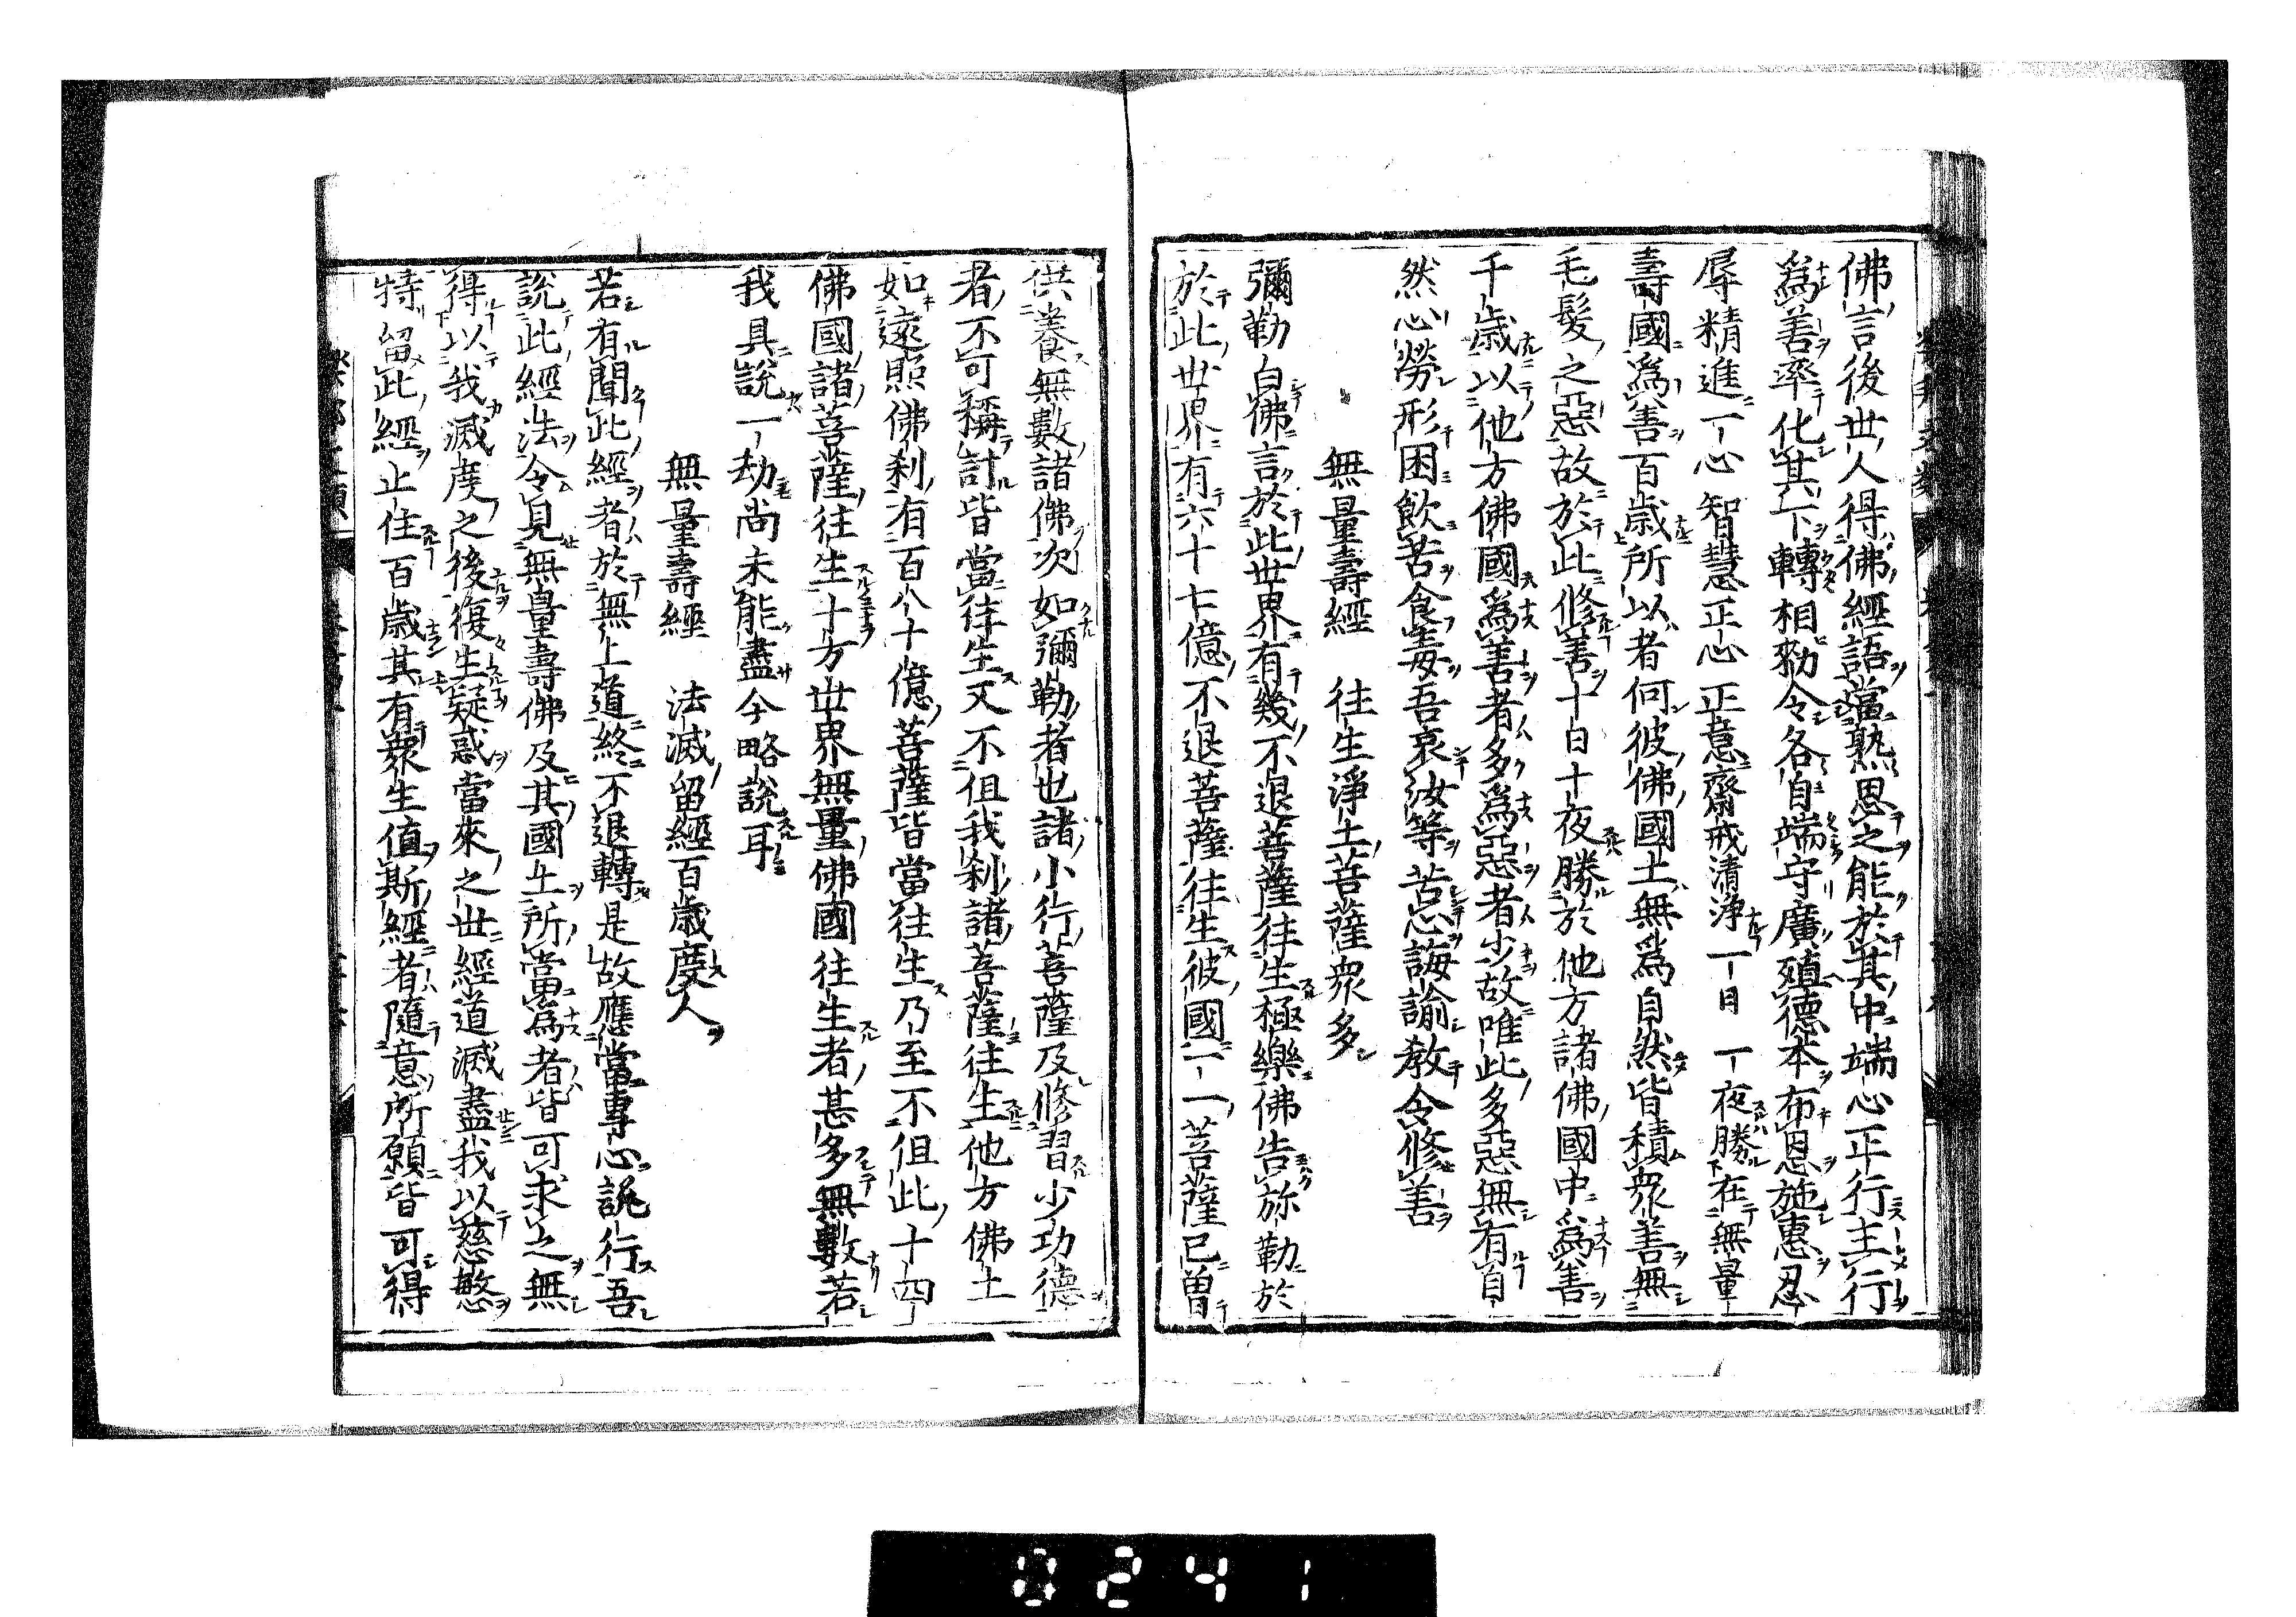 佛言後世人得佛經語當熟思之能於其中端心正行主行
爲善率化其下轉相勑令各自端守廣殖德本布恩施惠忍
辱精進一心智慧正心正意齋戒清淨一日一夜勝在無量
壽國爲善百歲所以者何彼佛國土無爲自然皆積衆善無
毛髮之惡故於此修善十日十夜勝於他方諸佛國中爲善
千歲以他方佛國爲善者多爲惡者少故唯此多惡無有自
然心勞形困飲苦食毒吾哀汝等苦心誨諭教令修善
無量壽經　往生淨土菩薩衆多
彌勒白佛言於此世界有幾不退菩薩往生極樂佛告弥勒於
於此世界有六十七億不退菩薩往生彼國一一菩薩已曽
供養無數諸佛次如彌勒者也諸小行菩薩及修習少功德
者不可稱計皆當往生又不但我刹諸菩薩往生他方佛土
如遠照佛刹有百八十億菩薩皆當往生乃至不但此十四
佛國諸菩薩往生十方世界無量佛國往生者甚多無數若
我具說一劫尚未能盡今略說耳
無量壽經　法滅留經百歲度人
若有聞此經者於無上道終不退轉是故應當專心說行吾
說此經法令見無量壽佛及其國土所當爲者皆可求之無
得以我滅度之後復生疑惑當來之世經道滅盡我以慈愍
特留此經止住百歲其有衆生値斯經者隨意所願皆可得
0241